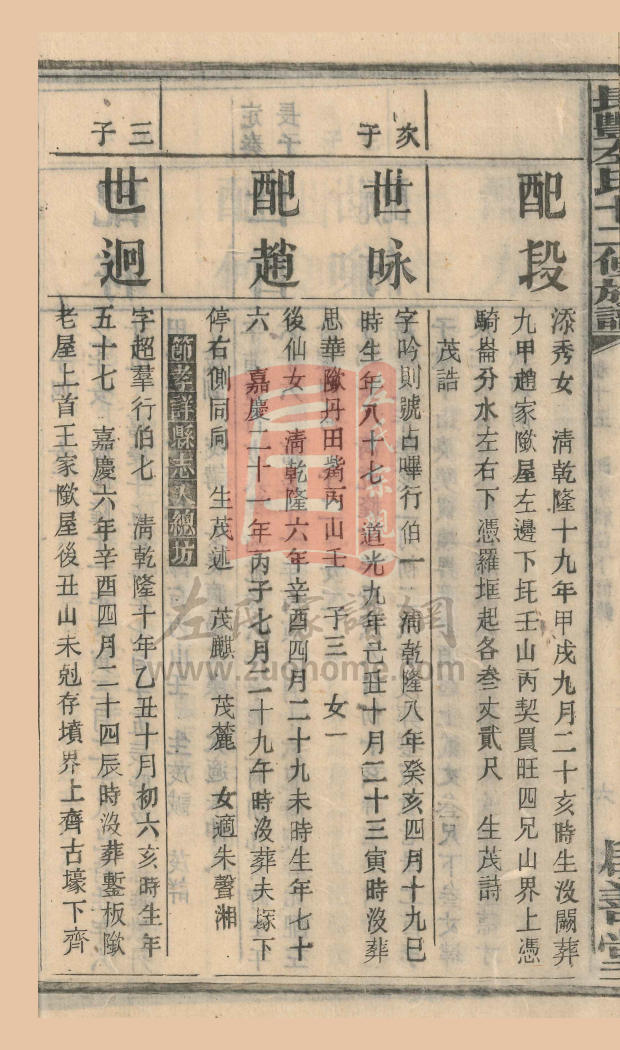 長豐左氏十二修族譜
配段
添秀女　清乾隆十九年甲戌九月二十亥時生沒闕葬
九甲趙家隞屋左邊下圫壬山丙契買旺四兄山界上憑
騎崙分水左右下憑羅堐起各叁丈貳尺　生茂詩
茂誥
次子
世咏
字吟則號占嗶行伯一　清乾隆八年癸亥四月十九巳
時生年八十七　道光九年己丑十月二十三寅時沒葬
思華隞丹田觜丙山壬　子三　女一
配趙
後仙女　清乾隆六年辛酉四月二十九未時生年七十
六　嘉慶二十一年丙子七月二十九午時沒葬夫塚下
停右側同向　生茂述　茂麒　茂麓　女適朱聲湘
節孝詳縣志入總坊
三子
世迥
字超羣行伯七　清乾隆十年乙丑十月初六亥時生年
五十七　嘉慶六年辛酉四月二十四辰時沒葬鏨板隞
老屋上首王家隞屋後丑山未尅存墳界上齊古壕下齊
左氏家譜網
www.zuohome.com